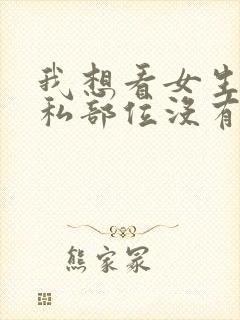 我想看女生
私部位没有
熊家冢